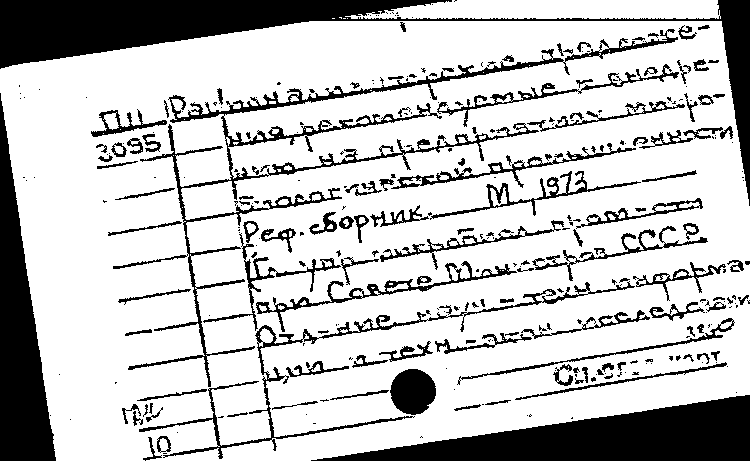 ПЦ Рационализаторские предложе-
3095 ния, рекомендуемые к внедре-
нию на предприятиях микро-
биологической промышленности
Реф. сборник. М, 1973
(Гл. упр. микробиол. пром-сти
при Совете Министров СССР.
Отд-ние научн-техн информа-
ции и техн-экон исследований
См.
10